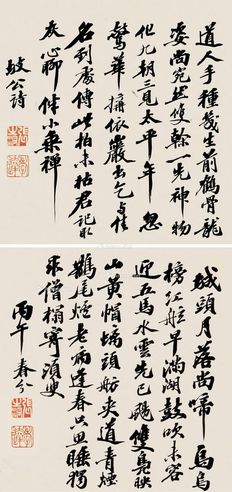 道人手種幾生前鶴骨龍
姿尚宛然雙幹一先神物
化九朝三見太平年忽
驚華構依巖出乞與佳
名到處傳此柏未枯君記取
灰心聊伴小乘禪
坡公詩
城頭月落尚啼烏烏
榜紅舷早滿湖鼓吹未容
迎五馬水雲先已颺雙鳧映
山黃帽螭頭舫夾道青煙
鵲尾爐老病逢春只思睡獨
求僧榻寄須臾
丙午春分